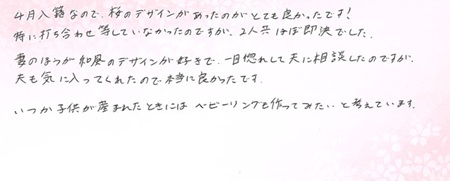 4月入籍なので、桜のデザインがあったのがとても良かったです!
特に打ち合わせ等していなかったのですが、2人共ほぼ即決でした。
妻のほうが和風のデザインが好きで、一目惚れして夫に相談したのですが、
夫も気に入ってくれたので本当に良かったです。
いつか子供が産まれたときには ベビーリングも作ってみたい、と考えています。